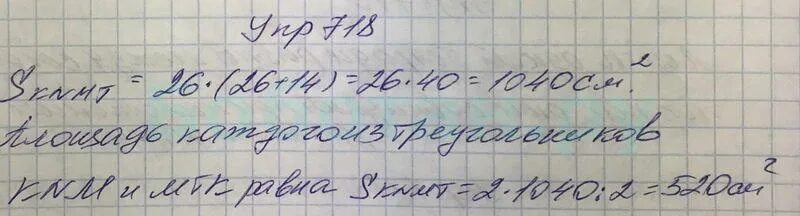 Упр 718
SKNMT = 26·(26+14)=26·40=1040см.²
Площадь каждого из треугольников
KNM и MTK равна SKNMT=2·1040:2=520см²